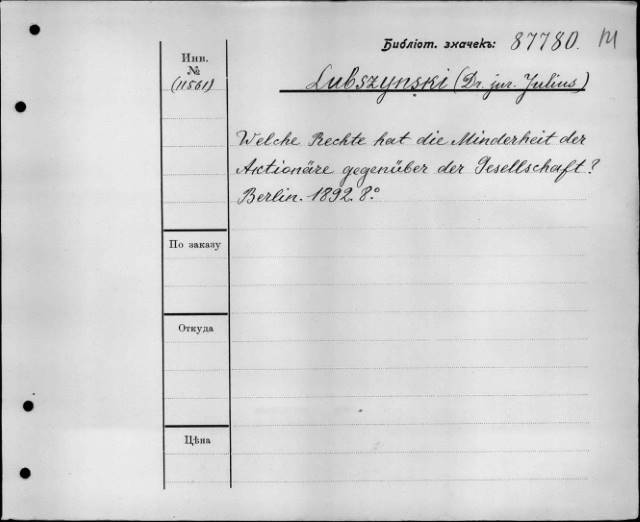 Библіот. значекъ: 87780. M
Инв.
№
(11561)
Lubszynski (Dr. jur. Julius)
Welche Rechte hat die Minderheit der
Aktionäre gegenüber der Gesellschaft?
Berlin. 1892. 8.°
По заказу
Откуда
Цѣна